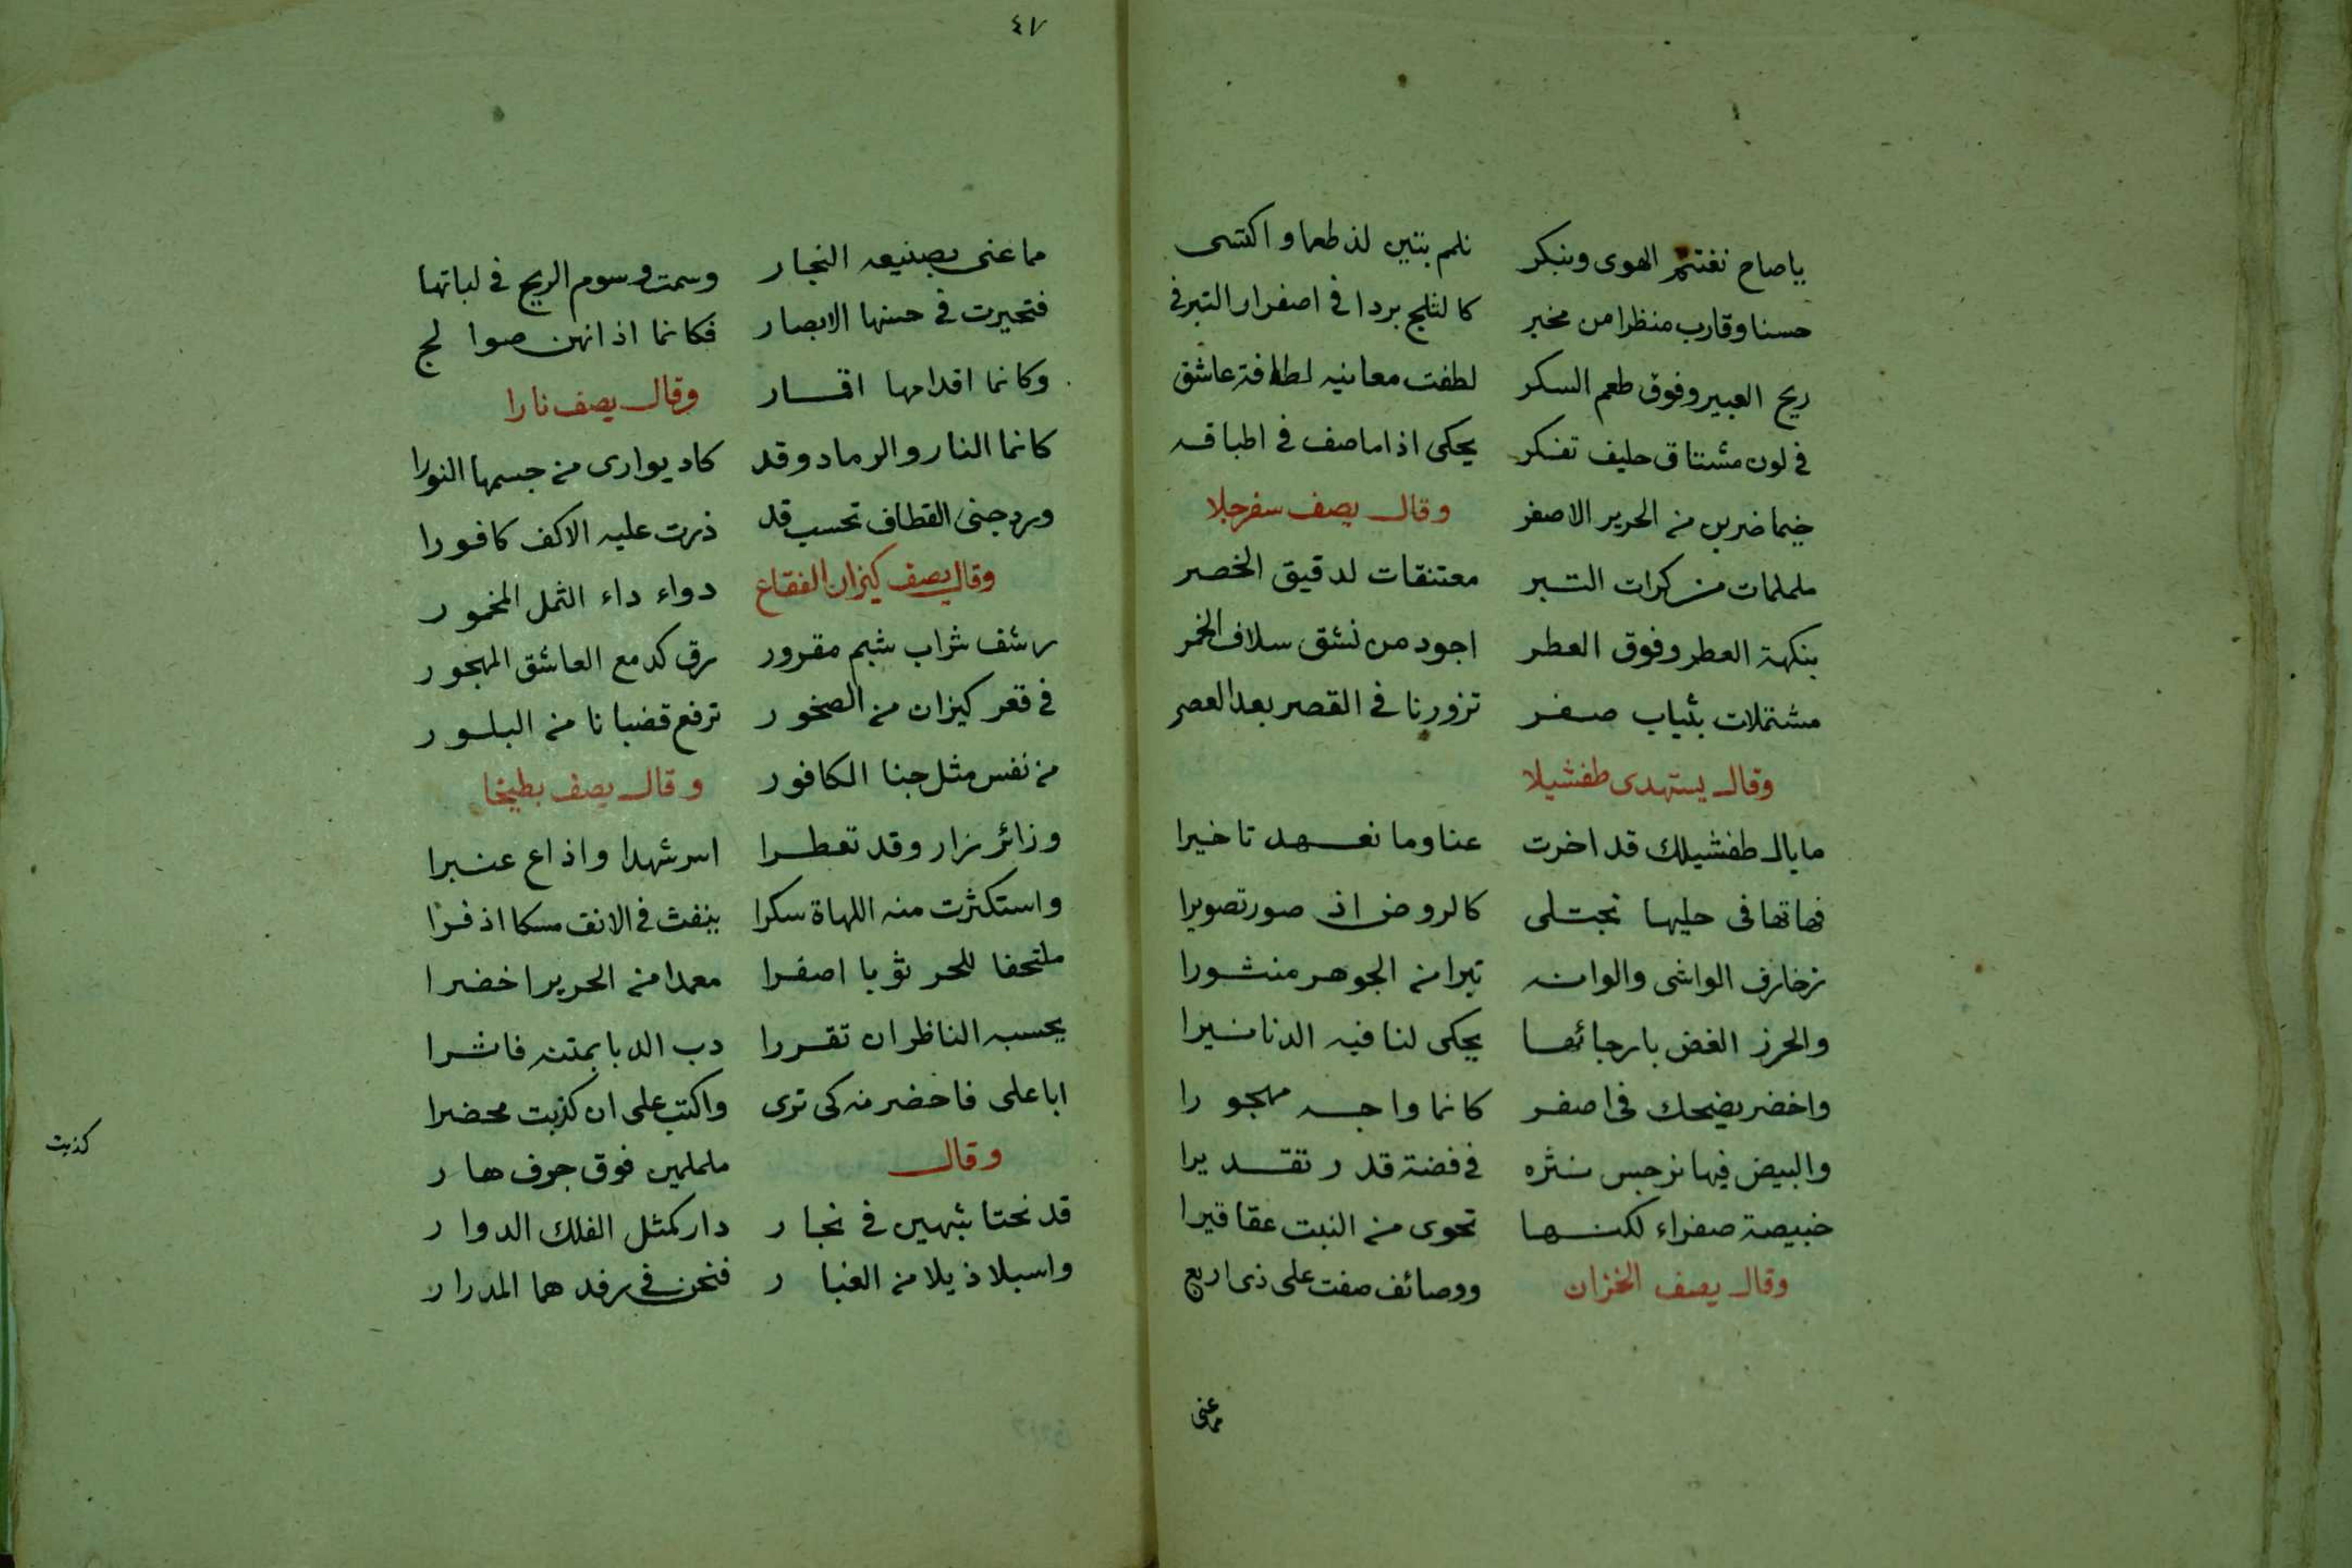 ياصاح نغتنم الهوى ونبكر نلم بتين لذ طعما واكتسى
حسنا وقارب منظرا من مخبر كالثلج بردا فى اصفرار التبر فى
ريح العبير وفوق طعم السكر لطفت معانيه لطافة عاشق
فى لون مشتاق حليف تفكر يحكى اذا ما صف فى اطباقه
خيما ضربن من الحرير الاصفر وقال يصف سفرجلا
ململمات من كرات التبر معتنقات لدقيق الخصر
بنكهة العطر وفوق العطر اجود من نشق سلاف الخمر
مشتملات بثياب صفر تزورنا فى القصر بعد العصر
وقال يستهدى طفشيلا
ما بال طفشيلك قد اخرت عنا وما نعهد تاخيرا
فهاتها فى حليها تجتلى كالروض اذ صور تصويرا
زخارف الواشى والوانه تبرا من الجوهر منثورا
والحرز الغض بارجائها يحكى لنا فيه الدنانيرا
واخضر يضحك فى اصفر كانما واجه مهجورا
والبيض فيها نرجس نثره فى فضة قدر تقديرا
خبيصة صفراء لكنها تحوى من النبت عقاقيرا
وقال يصف الخزان ووصائف صفت على ذى اربع
مما عنى
٤٧
مما عنى بصنيعه النجار وسمت وسوم الريح فى لباتها
فتحيرت فى حسنها الابصار فكانما اذانهن صوالج
وكانما اقدامها اقمار وقال يصف نارا
كانما النار والرماد وقد كاد يوارى من جسمها النورا
ورد جنى القطاف تحسب قد ذرت عليه الاكف كافورا
وقال يصف كيزان الفقاع دواء داء الثمل المخمور
رشف شراب شبم مقرور رق كدمع العاشق المهجور
فى قعر كيزان من الصخور ترفع قضبانا من البلور
من نفس مثل جنا الكافور وقال يصف بطيخا
وزائر زار وقد تعطرا اسر شهدا واذاع عنبرا
واستكثرت منه اللهاة سكرا ينفث فى الانف مسكا اذفرا
ملتحفا للحر ثوبا اصفرا معمدا من الحرير اخضرا
يحسبه الناظر ان تقررا دب الدبا بمتنه فاثرا
ابا على فاحضرنه كى ترى واكتب على ان كذبت محضرا
كذبت
وقال ململمين فوق جرف هار
قد نحتا شبهين فى نجار دار كمثل الفلك الدوار
واسبلا ذيلا من الغبار فنحن فى رفدهما المدرار